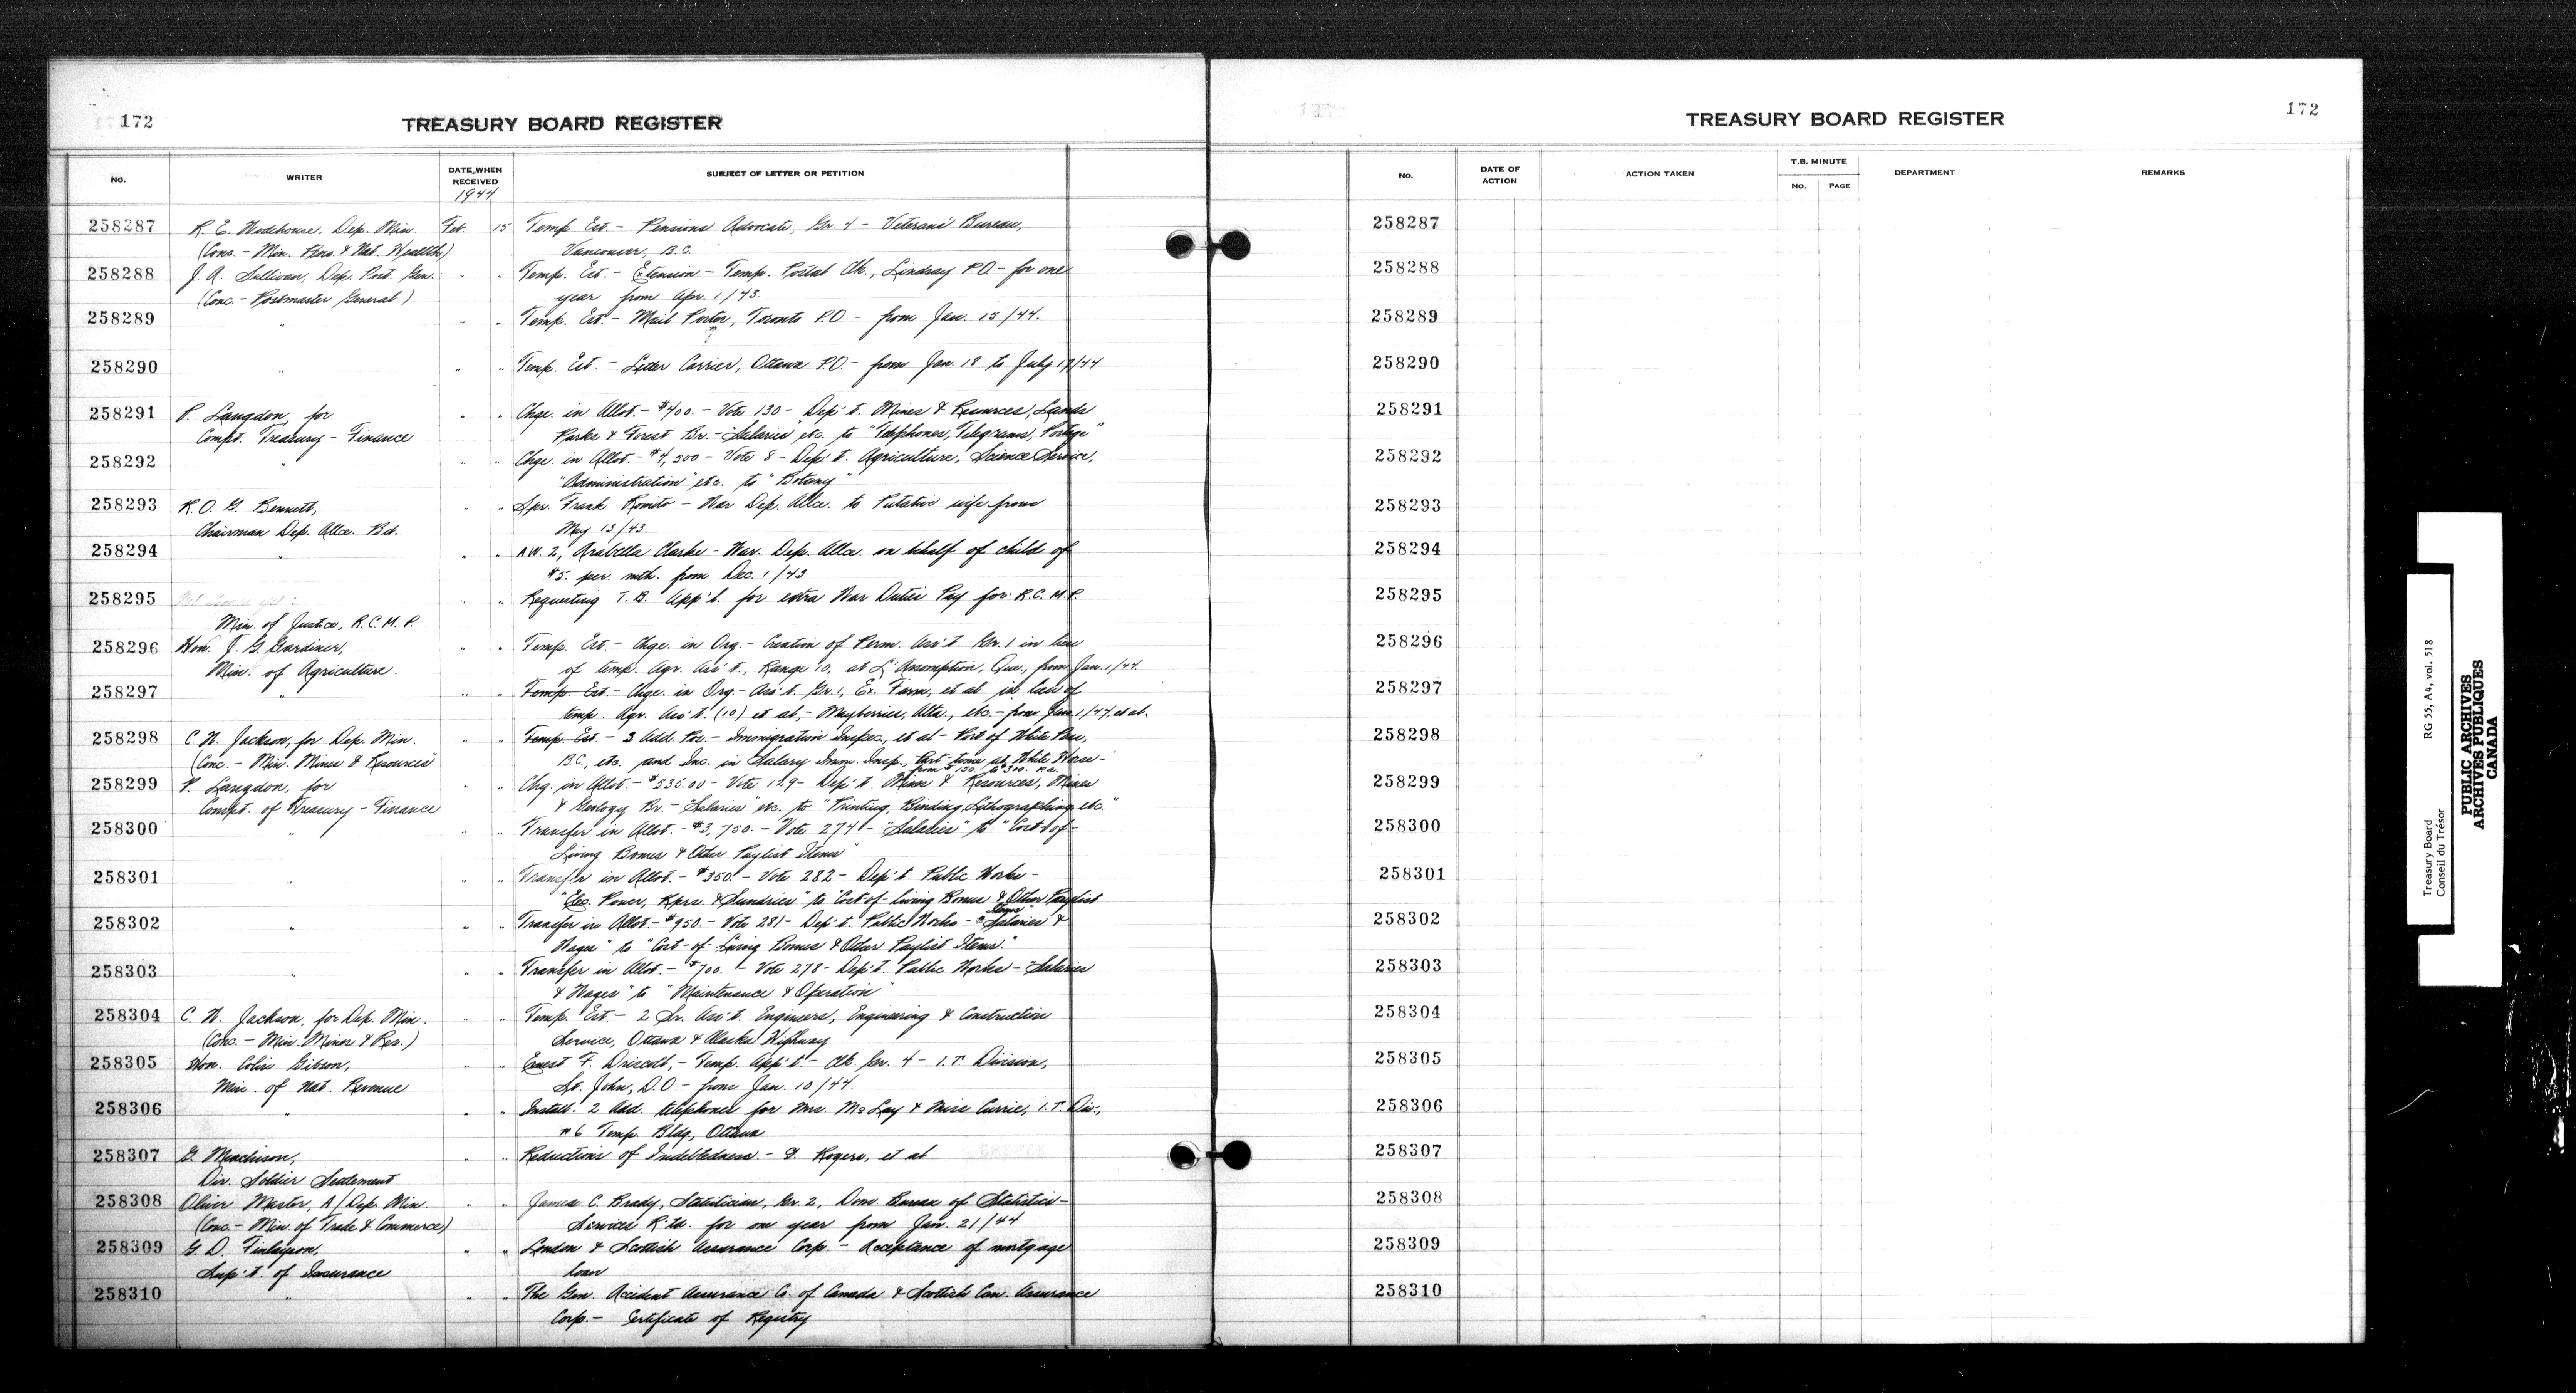 172
TREASURY BOARD REGISTER
No.
WRITER
DATE WHEN RECEIVED
1944
SUBJECT OF LETTER OR PETITION
258287 R. E. Wodehouse, Dep. Min. Feb. 15 Temp. Est. - Pensions Advocate, Gr. 4 - Veterans' Bureau,
(Conc. - Min. Pens. & Nat. Health) Vancouver, B.C.
258288 J. A. Sullivan, Dep. Post. Gen. " " Temp. Est. - Extension - Temp. Postal Clk., Lindsay P.O. - for one
(Conc. - Postmaster General) year from Apr. 1/43.
258289 " " " Temp. Est. - Mail Porter, Toronto P.O. - from Jan. 15/44.
258290 " " " Temp. Est. - Letter Carrier, Ottawa P.O. - from Jan. 18 to July 17/44
258291 P. Langdon, for " " Chge. in Allot. - $400. - Vote 130 - Dep't. Mines & Resources, Lands
Compt. Treasury - Finance Parks & Forest Br. - "Salaries" etc. to "Telephones, Telegrams, Postage"
258292 " " " Chge. in Allot. - $4,500 - Vote 8 - Dep't. Agriculture, Science Service,
"Administration" etc. to "Botany"
258293 R. O. G. Bennett, " " Spr. Frank Romito - War Dep. Allce. to Putative wife from
Chairman Dep. Allce. Bd. May 13/43.
258294 " " " A.W. 2, Arabella Clarke - War. Dep. Allce. on behalf of child of
$5. per. mth. from Dec. 1/43
258295 " " Requesting T.B. App'l. for extra War Duties Pay for R.C.M.P.
Min. of Justice, R.C.M.P.
258296 Hon. J. G. Gardiner, " " Temp. Est. - Chge. in Org. - Creation of Perm. Ass't. Gr. 1 in lieu
Min. of Agriculture. of temp. Agr. Ass't., Range 10, at L'Assomption, Que., from Jan. 1/44.
258297 " " " Temp. Est. - Chge. in Org. - Ass't. Gr. 1, Ex. Farm, et al in lieu of
temp. Agr. Ass't. (10) et al, - Manyberries, Alta., etc. - from Jan. 1/44, et al.
258298 C. W. Jackson, for Dep. Min. " " Temp. Est. - 3 Add. Pos. - Immigration Inspec., et al - Port of White Pass,
(Conc. - Min. Mines & Resources B.C., etc. and Inc. in Salary Imm. Insp., Part-time at White Horse -
from $150. to $300. p.a.
258299 P. Langdon, for " " Chg. in Allot. - $535.00 - Vote 129 - Dep't. Mines & Resources, Mines
Compt. of Treasury - Finance & Geology Br. - "Salaries" etc. to "Printing, Binding, Lithographing, etc."
258300 " " " Transfer in Allot. - $3,750. - Vote 274 - "Salaries" to "Cost-of-
Living Bonus & Other Paylist Items"
258301 " " " Transfer in Allot. - $350. - Vote 282 - Dep't. Public Works -
"Elec. Power, Rprs. & Sundries" to "Cost-of-living Bonus & Other Paylist
Items"
258302 " " " Transfer in Allot. - $950. - Vote 281 - Dep't. Public Works - "Salaries &
Wages" to "Cost-of-Living Bonus & Other Paylist Items."
258303 " " " Transfer in Allot. - $700. - Vote 278 - Dep't. Public Works - "Salaries
& Wages" to "Maintenance & Operation"
258304 C. W. Jackson, for Dep. Min. " " Temp. Est. - 2 Sr. Ass't. Engineers, Engineering & Construction
(Conc. - Min. Mines & Res.) Service, Ottawa & Alaska Highway
258305 Hon. Colin Gibson, " " Ernest F. Driscoll, - Temp. App't. - Clk. Gr. 4 - I.T. Division,
Min. of Nat. Revenue St. John, D.O - from Jan. 10/44.
258306 " " " Install. 2 Add. telephones for Mrs. McLay & Miss Currie, I.T. Div.,
#6 Temp. Bldg., Ottawa
258307 G. Murchison, " Reductions of Indebtedness. - G. Rogers, et al
Dir. Soldier Settlement
258308 Oliver Master, A/Dep. Min. " " James C. Brady, Statistician, Gr. 2, Dom. Bureau of Statistics -
(Conc. - Min. of Trade & Commerce) Services R'td. for one year from Jan. 21/44
258309 G. D. Finlayson, " " London & Scottish Assurance Corp. - Acceptance of mortgage
Sup't. of Insurance loan
258310 " " " The Gen. Accident Assurance Co. of Canada & Scottish Can. Assurance
Corp. - Certificate of Registry
172
TREASURY BOARD REGISTER
No.
DATE OF ACTION
ACTION TAKEN
T.B. MINUTE
No.
PAGE
DEPARTMENT
REMARKS
258287
258288
258289
258290
258291
258292
258293
258294
258295
258296
258297
258298
258299
258300
258301
258302
258303
258304
258305
258306
258307
258308
258309
258310
Treasury Board RG 55, A4, vol. 518
Conseil du Trésor
PUBLIC ARCHIVES
ARCHIVES PUBLIQUES
CANADA